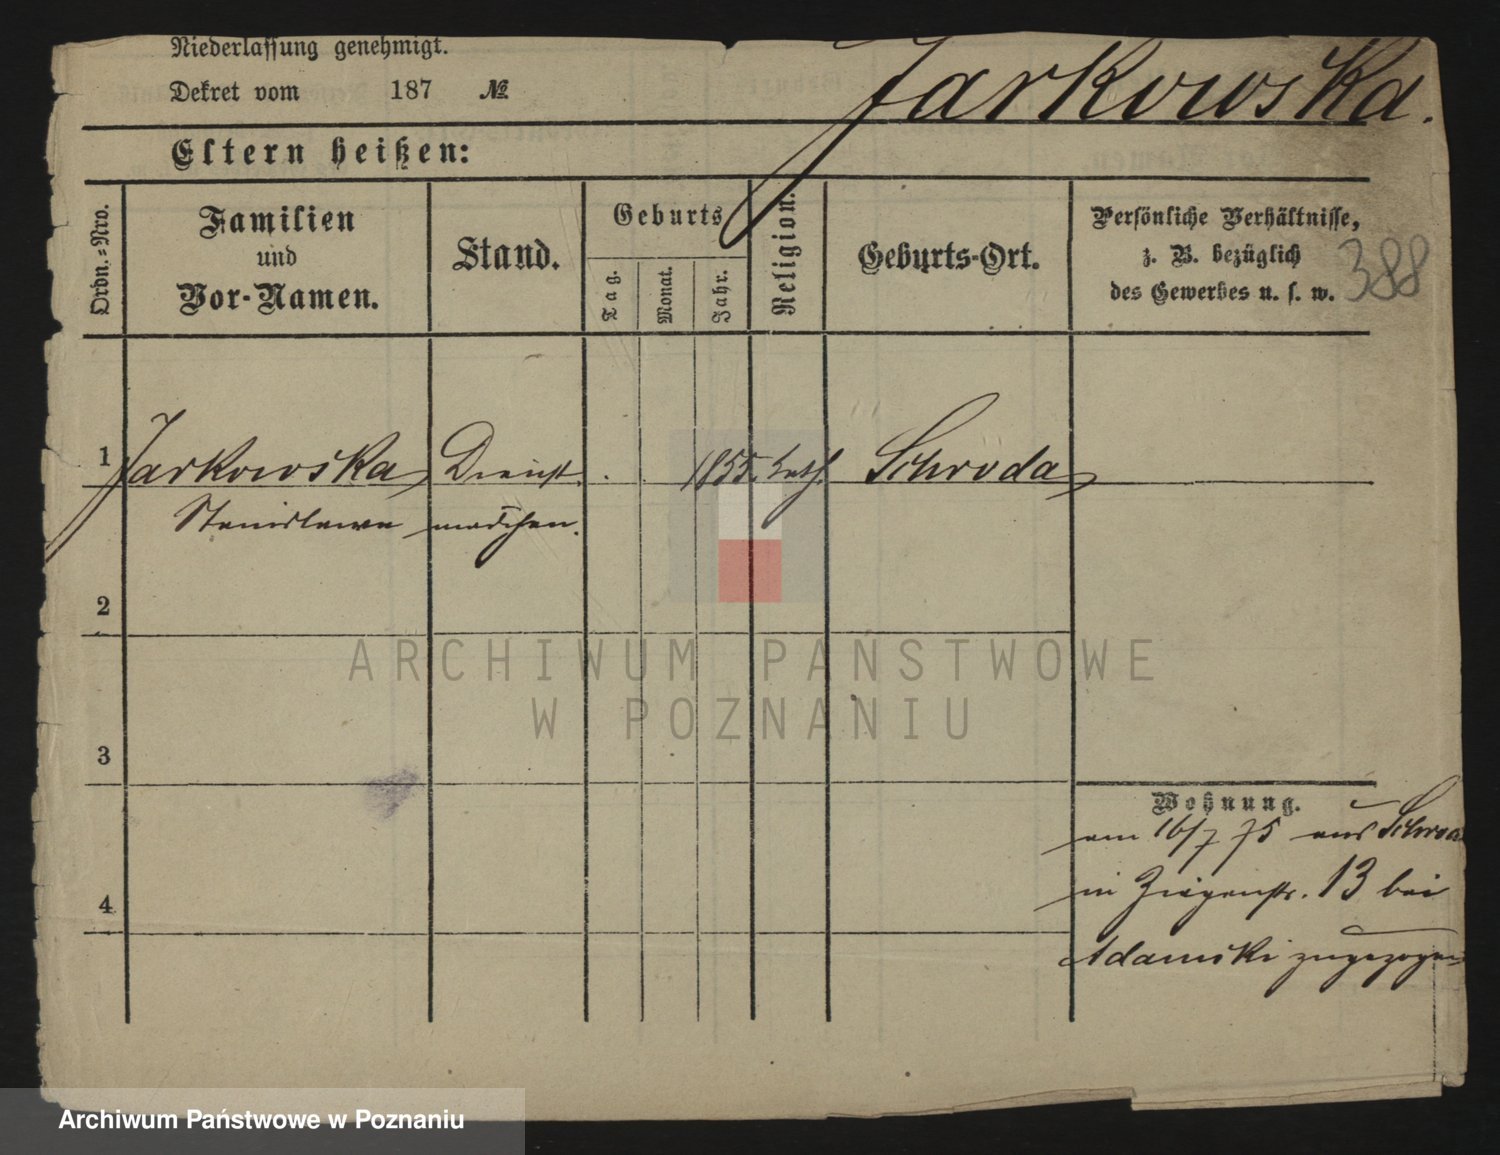 Niederlassung genehmigt.
Dekret vom 187 №
Jarkowska.
Eltern heißen:
Ordn.-Nro.
Familien
und
Vor-Namen.
Stand.
Geburts
Tag.
Monat.
Jahr.
Religion.
Geburts-Ort.
Persönliche Verhältnisse,
z. B. bezüglich
des Gewerbes u. s. w.
388
1 Jarkowska Dienst 1855. kath. Schroda
Stanislawa mädchen.
2
3
4
Wohnung.
am 16/7 75 aus Schroda
in Ziegenstr. 13 bei
Adamski zugezogen
ARCHIWUM PAŃSTWOWE
W POZNANIU
Archiwum Państwowe w Poznaniu